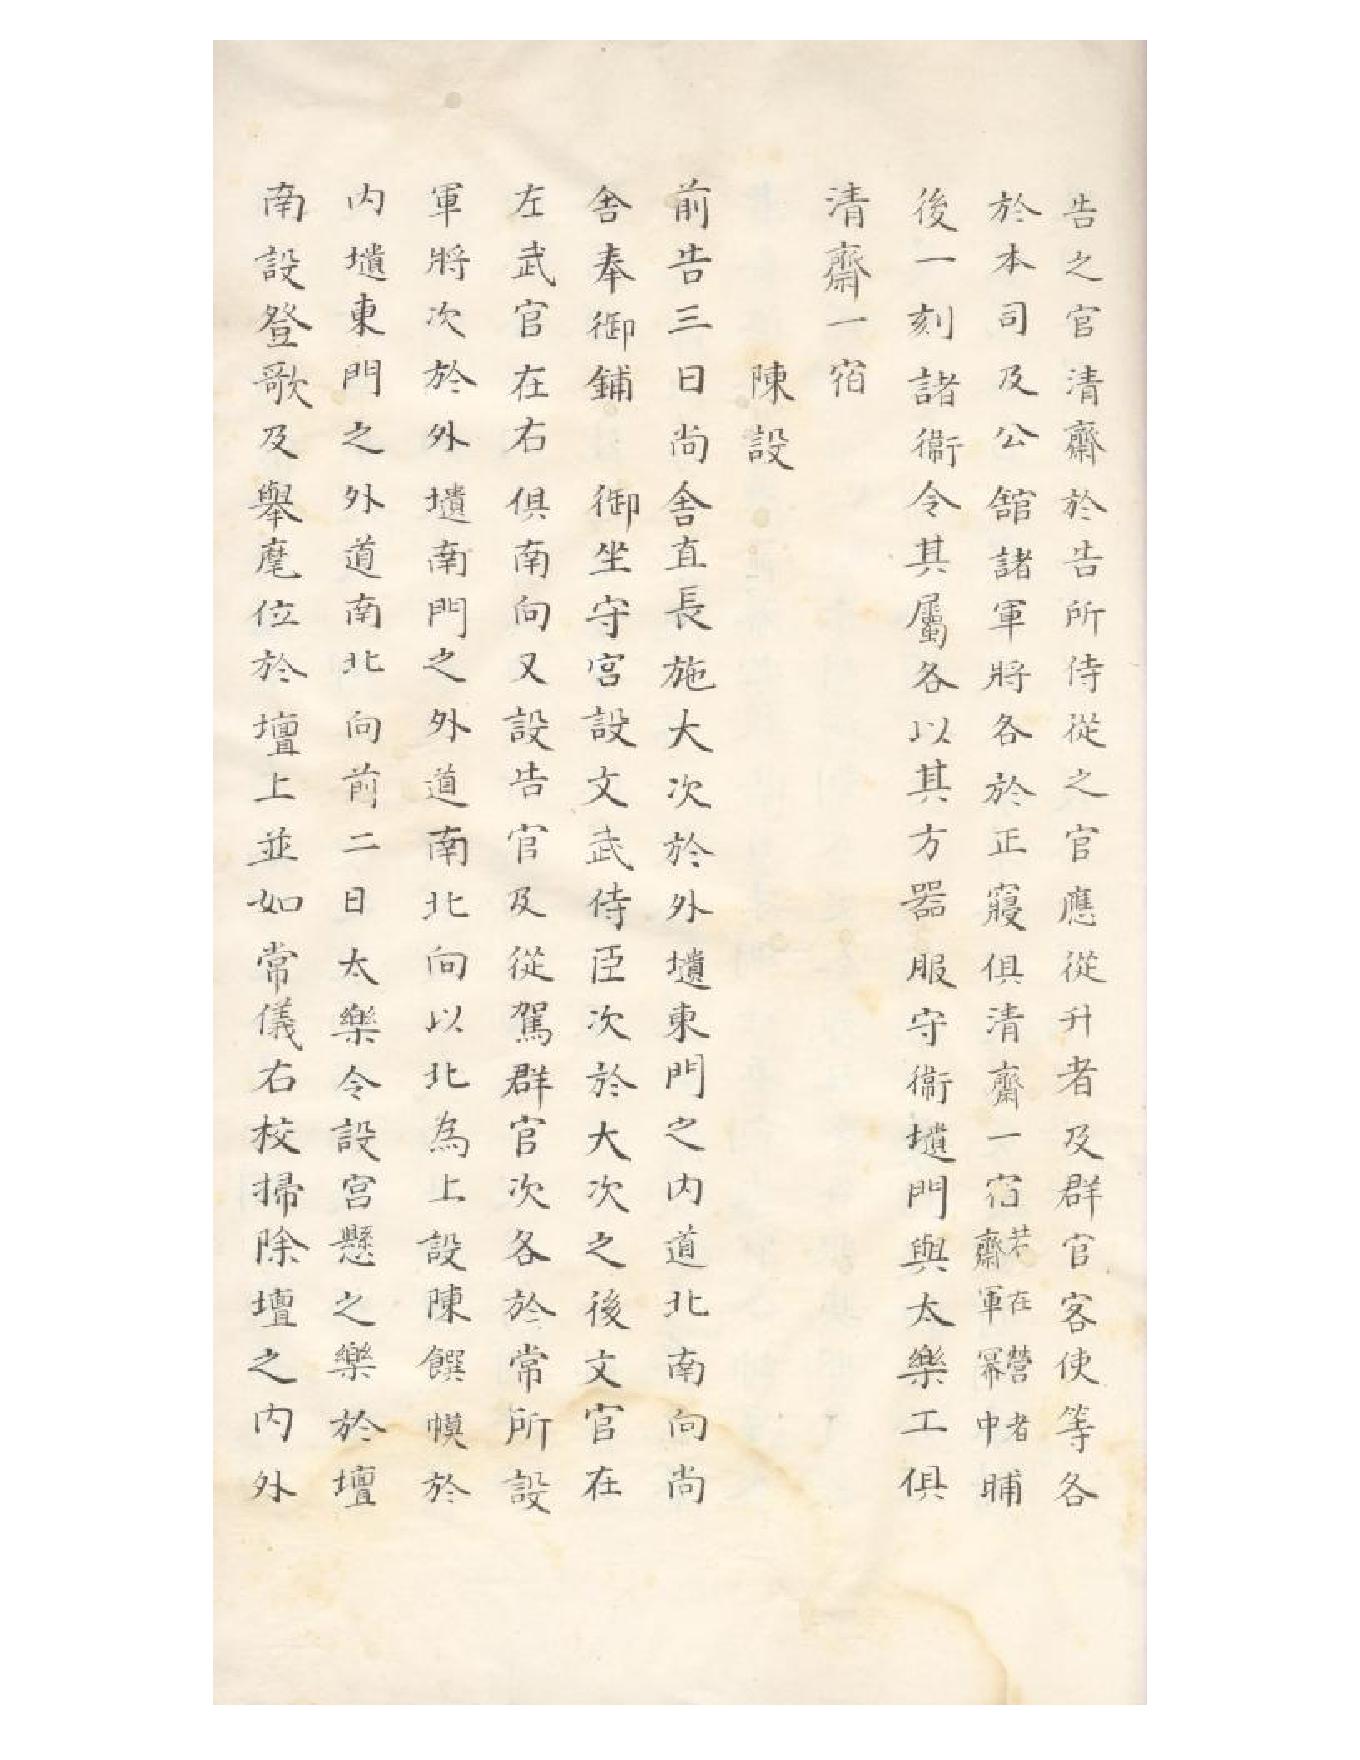 告之官清齋於告所侍從之官應從升者及群官客使等各
於本司及公舘諸軍將各於正寢俱清齋一宿若在營者齋軍幕中晡
後一刻諸衛令其屬各以其方器服守衛壝門與太樂工俱
清齋一宿
陳設
前告三日尚舍直長施大次於外壝東門之内道北南向尚
舍奉御鋪　御坐守宮設文武侍臣次於大次之後文官在
左武官在右俱南向又設告官及從駕群官次各於常所設
軍將次於外壝南門之外道南北向以北為上設陳饌幙於
内壝東門之外道南北向前二日太樂令設宮懸之樂於壇
南設登歌及舉麾位於壇上並如常儀右校掃除壇之内外